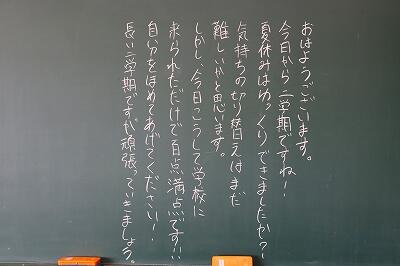 おはようございます。
今日から二学期ですね！
夏休みはゆっくりできましたか？
気持ちの切り替えはまだ
難しいかと思います。
しかし、今日こうして学校に
来られただけで百点満点です!!
自分をほめてあげてください！
長い二学期ですが頑張っていきましょう。